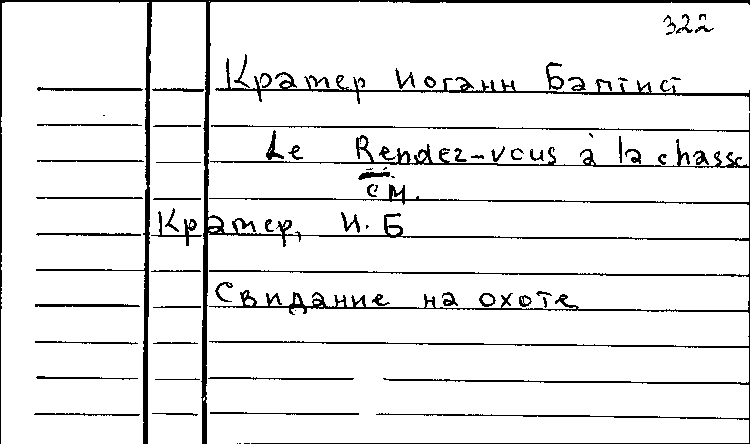 322
Кратер Иоганн Баптист
Le Rendez-vous à la chasse
см.
Кратер, И. Б
Свидание на охоте